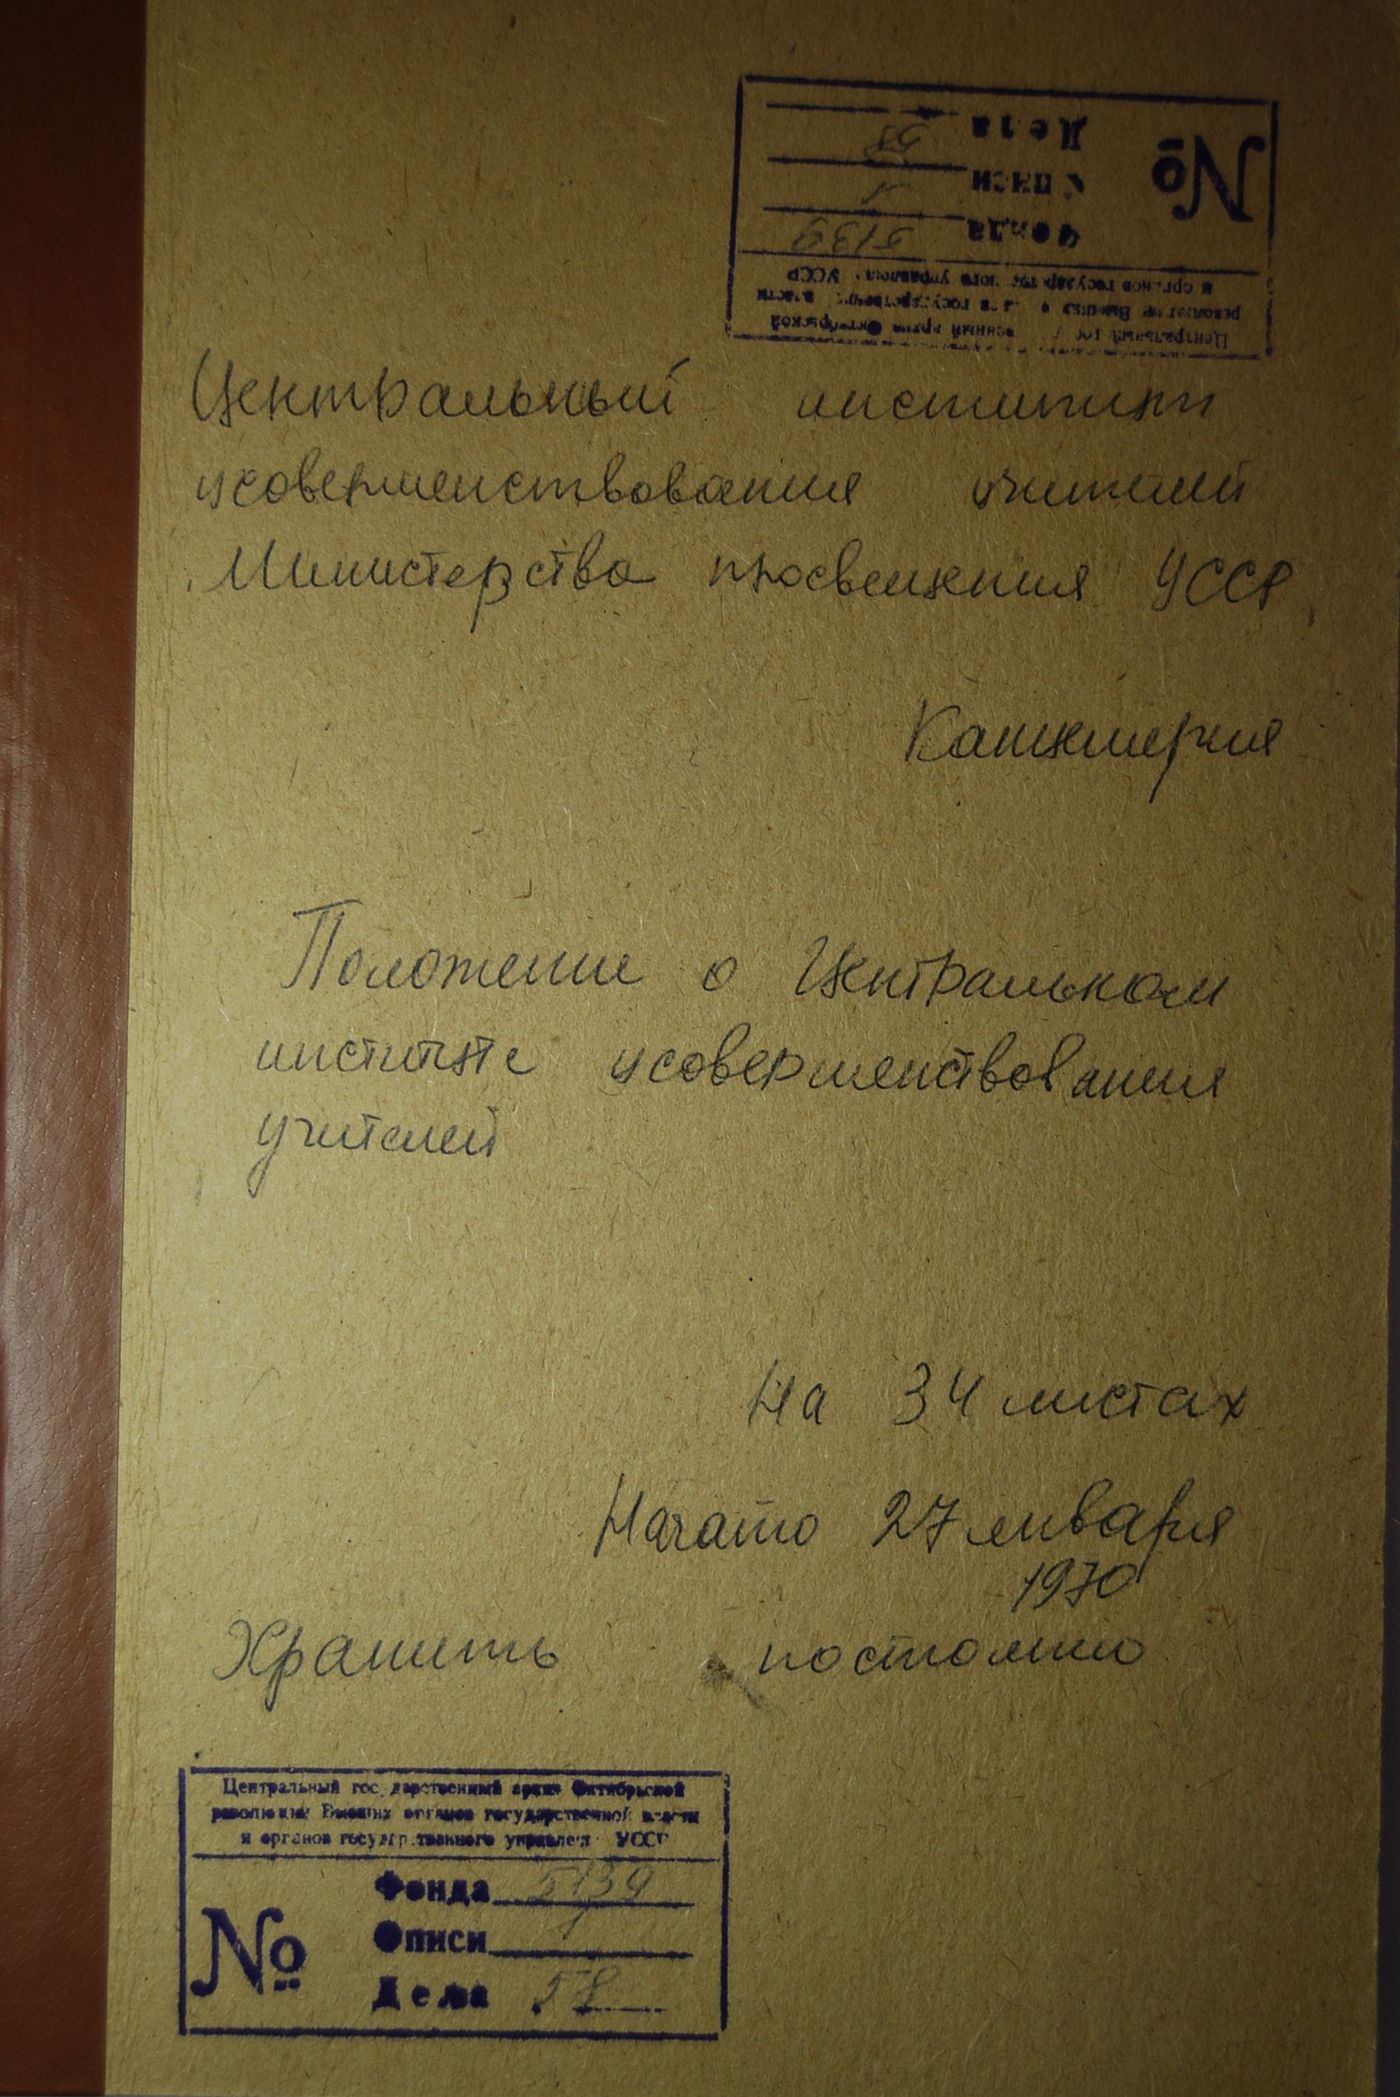 Центральный государственный архив Октябрьской
революции Высших органов государственной власти
и органов государственного управлен. УССР
Фонда 5139
Описи 1
Дела 58
№
Центральный институт
усовершенствования учителей
Министерства просвещения УССР
Канцелярия
Положение о Центральном
институте усовершенствования
учителей
На 34 листах
Начато 27 января
1970
Хранить постоянно
Центральный государственный архив Октябрьской
революции Высших органов государственной власти
и органов государственного управлен. УССР
Фонда 5139
Описи 1
№
Дела 58